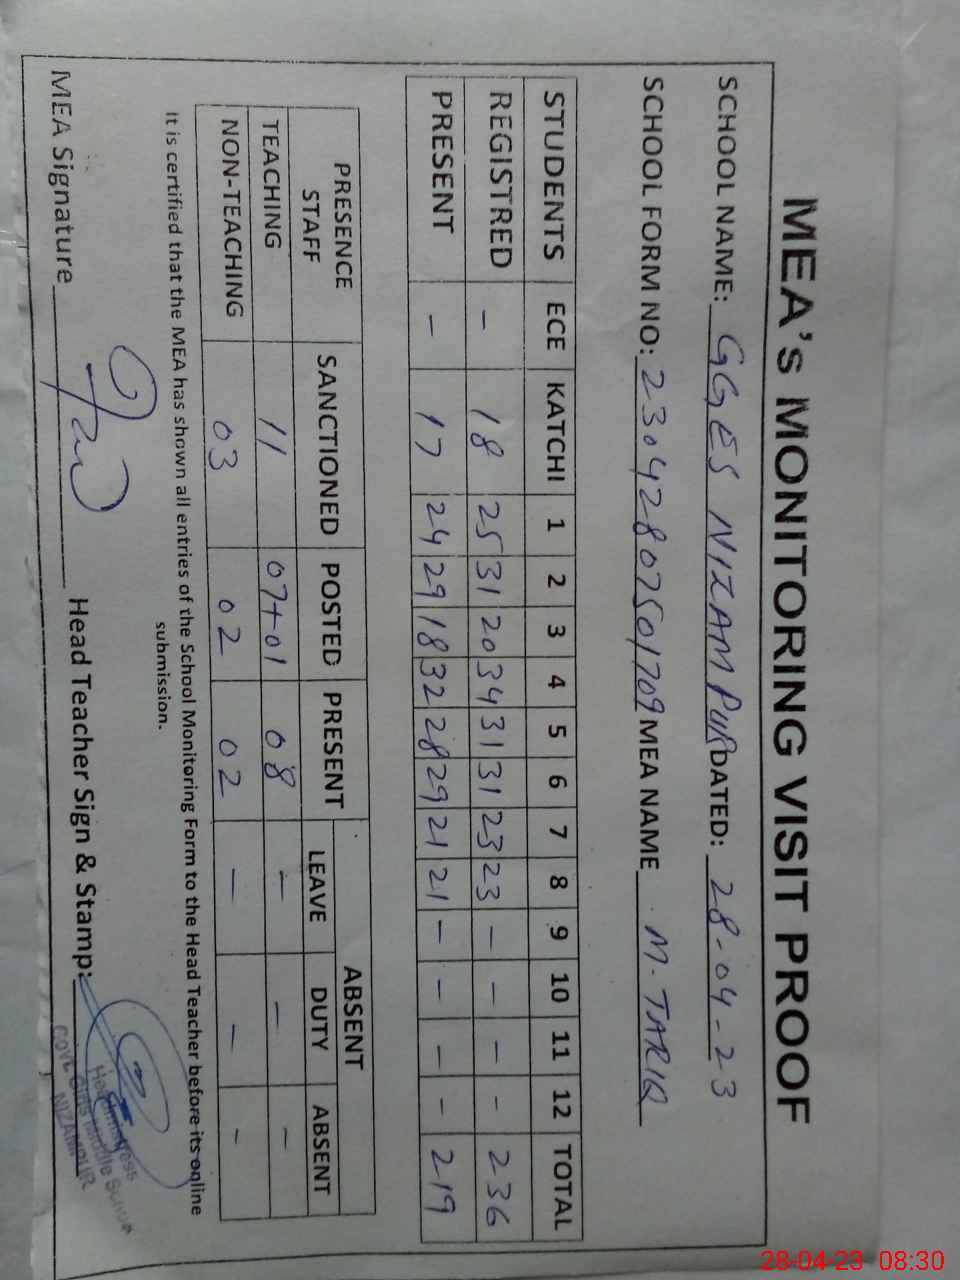 MEA's MONITORING VISIT PROOF
SCHOOL NAME: GGES NIZAMPUR DATED: 28-04-23
SCHOOL FORM NO: 23042807501709 MEA NAME M. TARIQ
STUDENTS ECE KATCHI 1 2 3 4 5 6 7 8 9 10 11 12 TOTAL
REGISTRED - 18 25 31 20 34 31 31 23 23 - - - - 236
PRESENT - 17 24 29 18 32 28 29 21 21 - - - - 219
PRESENCE STAFF SANCTIONED POSTED PRESENT ABSENT
LEAVE DUTY ABSENT
TEACHING 11 07+01 08 - - -
NON-TEACHING 03 02 02 - - -
It is certified that the MEA has shown all entries of the School Monitoring Form to the Head Teacher before its online
submission.
MEA Signature Head Teacher Sign & Stamp:
Headmistress
Govt. Girls Middle School
NIZAMPUR
28-04-23 08:30